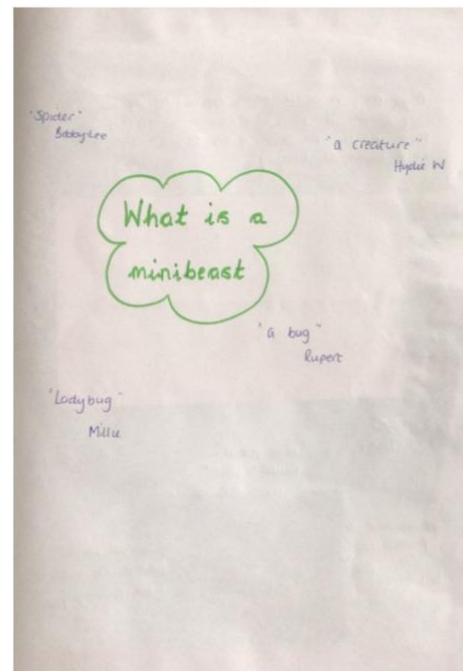 "Spider"
Bobby-Lee
"a creature"
Hydie W
What is a
minibeast
"a bug"
Rupert
"Ladybug"
Millie